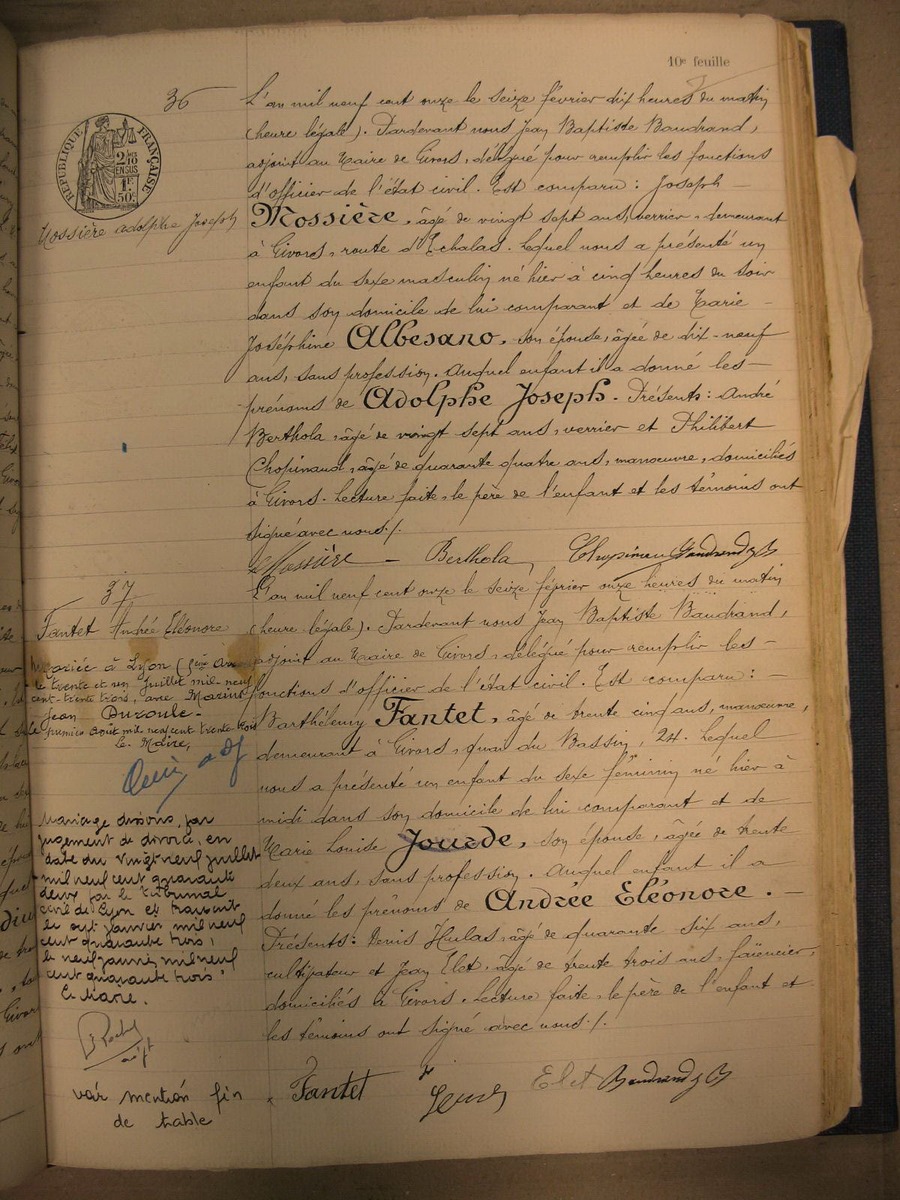 10e feuille
36
RÉPUBLIQUE FRANÇAISE
Mossière Adolphe Joseph
L'an mil neuf cent onze le seize février dix heures du matin
(heure légale). Pardevant nous Jean Baptiste Baudrand,
adjoint au Maire de Givors, délégué pour remplir les fonctions
d'officier de l'état civil. Est comparu : Joseph
Mossière, âgé de vingt sept ans, verrier, demeurant
à Givors, route d'Echalas. Lequel nous a présenté un
enfant du sexe masculin né hier à cinq heures du soir
dans son domicile de lui comparant et de Marie
Joséphine Albesano, son épouse, âgée de dix-neuf
ans, sans profession. Auquel enfant il a donné les
prénoms de Adolphe Joseph. Présents : André
Berthola, âgé de vingt sept ans, verrier et Philibert
Chopinaud, âgé de quarante quatre ans, manœuvre, domiciliés
à Givors. Lecture faite, le père de l'enfant et les témoins ont
signé avec nous./.
Mossière – Berthola, Chopinau Baudrand JB
37
Fantet Andrée Eléonore
Mariée à Lyon
le trente et un Juillet mil-neuf
cent-trente trois, avec Marius
Jean
Le premier Août mil neuf cent trente trois
le Maire,
adj
Mariage dissous, par
jugement de divorce, en
date du vingt neuf juillet
mil neuf cent quarante
deux par le Tribunal
civil de Lyon et transcrit
le huit janvier mil neuf
cent quarante trois,
le neuf janvier mil neuf
cent quarante trois
Le Maire.
adjt
voir mention fin
de table
L'an mil neuf cent onze le seize février onze heures du matin
(heure légale). Pardevant nous Jean Baptiste Baudrand,
adjoint au Maire de Givors, délégué pour remplir les
fonctions d'officier de l'état civil. Est comparu :
Barthélemy Fantet, âgé de trente cinq ans, manœuvre,
demeurant à Givors, quai du Bassin, 24. Lequel
nous a présenté un enfant du sexe féminin né hier à
midi dans son domicile de lui comparant et de
Marie Louise Jourde, son épouse, âgée de trente
deux ans, sans profession. Auquel enfant il a
donné les prénoms de Andrée Eléonore.
Présents : Denis Hulas, âgé de quarante six ans,
cultivateur et Jean Elet, âgé de trente trois ans, faïencier,
domiciliés à Givors. Lecture faite, le père de l'enfant et
les témoins ont signé avec nous./.
Fantet Elet Baudrand JB